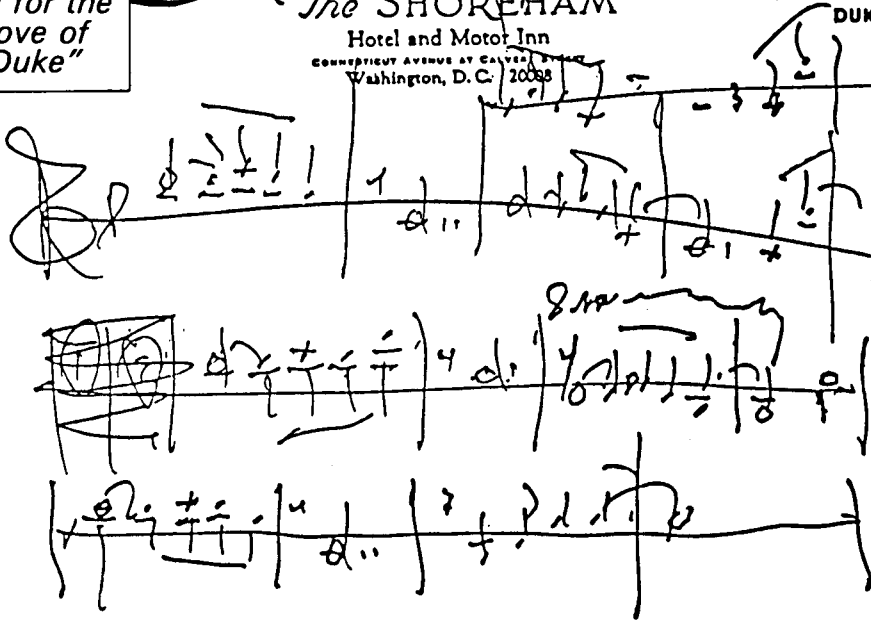 for the
ove of
Duke"
The SHOREHAM
DUK
Hotel and Motor Inn
CONNECTICUT AVENUE AT CALVERT STREET
Washington, D. C. 20008
8va